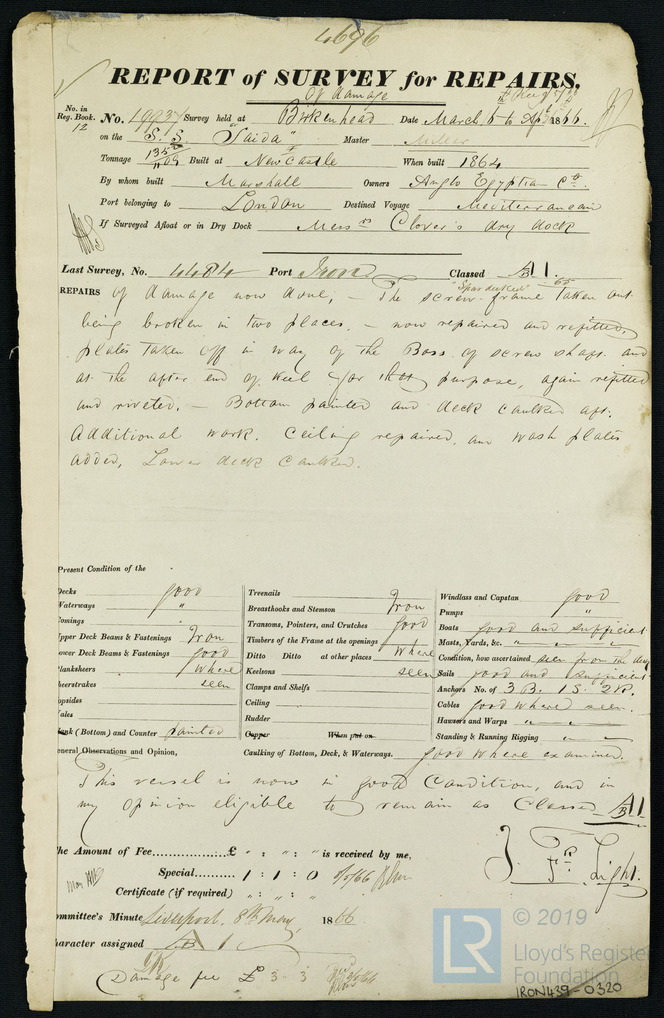 4696
REPORT of SURVEY for REPAIRS,
Of damage
No. in Reg. Book. 12
No. 19937 Survey held at Birkenhead Date March 5 to Apl 1866
on the S.S. "Saida" Master Miller
Tonnage 1352 1109 Built at Newcastle When built 1864
By whom built Marshall Owners Anglo Egyptian Co.
Port belonging to London Destined Voyage Mediterranean
If Surveyed Afloat or in Dry Dock Messrs Clover's dry dock
Last Survey, No. 4484 Port Iron Classed A 1.
"Spar decked" 65
REPAIRS of damage now done, – The screw frame taken out
being broken in two places, – now repaired and refitted,
plates taken off in way of the Boss of screw shaft and
at the after end of keel for that purpose, again refitted
and riveted, – Bottom painted and deck caulked aft.
Additional work. Ceiling repaired, and wash plates
added, Lower deck Caulked.
Present Condition of the
Decks good
Waterways "
Comings "
Upper Deck Beams & Fastenings Iron
Lower Deck Beams & Fastenings good
Planksheers where
Sheerstrakes seen
Topsides
Wales
Plank (Bottom) and Counter painted
Treenails
Breasthooks and Stemson Iron
Transoms, Pointers, and Crutches good
Timbers of the Frame at the openings
Ditto Ditto at other places where
Keelsons seen
Clamps and Shelfs
Ceiling
Rudder
Copper When put on
Caulking of Bottom, Deck, & Waterways. good where examined.
Windlass and Capstan good
Pumps "
Boats good and sufficient
Masts, Yards, &c. " " "
Condition, how ascertained seen from the deck
Sails good and sufficient
Anchors No. of 3 B. 1 S. 2 K.
Cables good where seen.
Hawsers and Warps " " "
Standing & Running Rigging " "
General Observations and Opinion,
This vessel is now in good Condition, and in
my opinion eligible to remain as Classed A 1
The Amount of Fee..................£ " : " : " is received by me,
Special.......... 1 : 1 : 0
Certificate (if required) " : " : "
J. Fr. Light.
Committee's Minute Liverpool, 8th May, 1866
Character assigned A 1
Damage fee £ 3 . 3
LR
© 2019
Lloyd's Register
Foundation
IRON439-0320